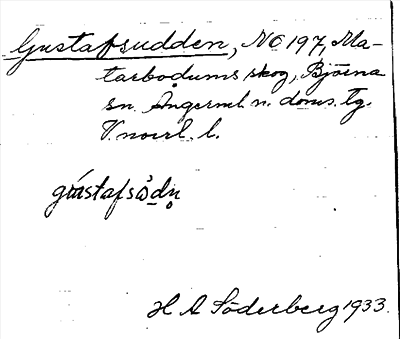 Gustafsudden, NO 197, Ma-
tarbodums skog, Björna
sn. Ångerml. n. doms. tg.
V. norrl. l.
H A Söderberg 1933.